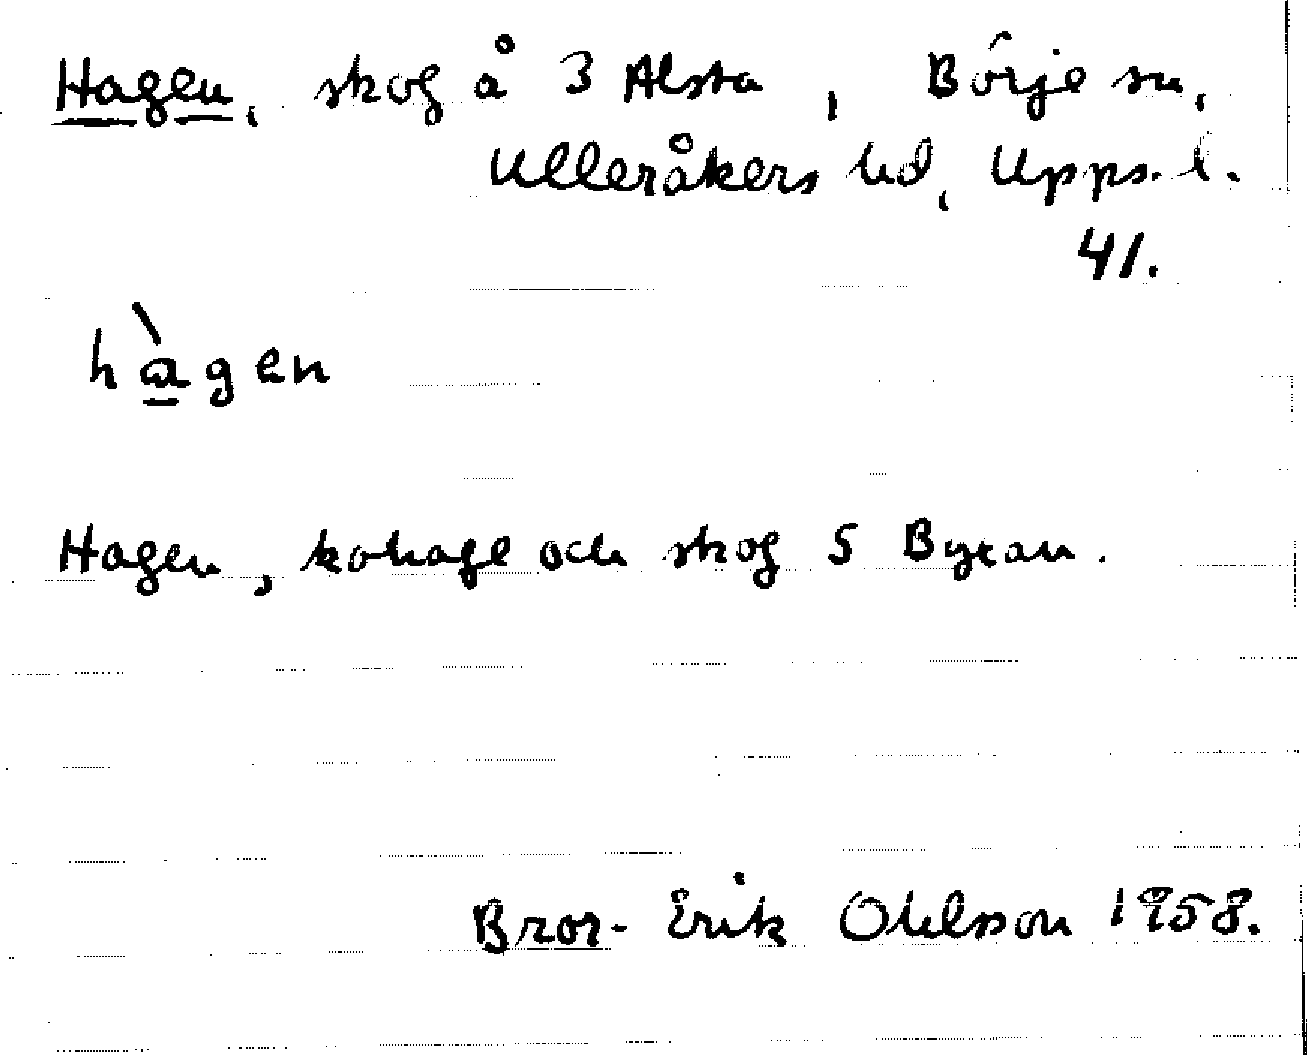 Hagen, skog å 3 Alsta, Börje sn,
Ulleråkers hd, Upps. l.
41.
hàgen
Hagen, kohage och skog S Byxan.
Bror-Erik Ohlsson 1958.